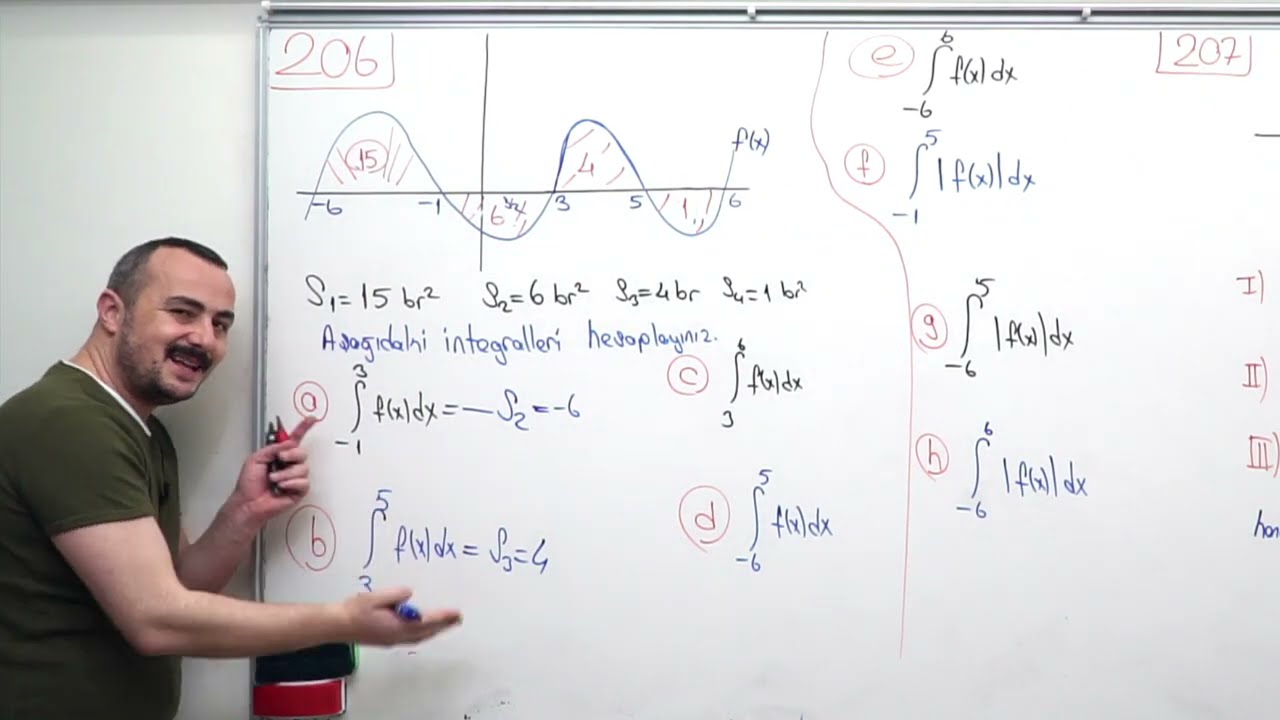 206
f(x)
15
4
-6 -1 3 5 6
6
1
S₁=15 br² S₂=6 br² S₃=4 br S₄=1 br²
Aşağıdaki integralleri hesaplayınız.
a ∫₋₁³ f(x)dx = — S₂ = -6
b ∫₃⁵ f(x)dx = S₃ = 4
c ∫₃⁶ f(x)dx
d ∫₋₆⁵ f(x)dx
e ∫₋₆⁶ f(x)dx
f ∫₋₁⁵ |f(x)|dx
g ∫₋₆⁵ |f(x)|dx
h ∫₋₆⁶ |f(x)|dx
207
I)
II)
III)
han